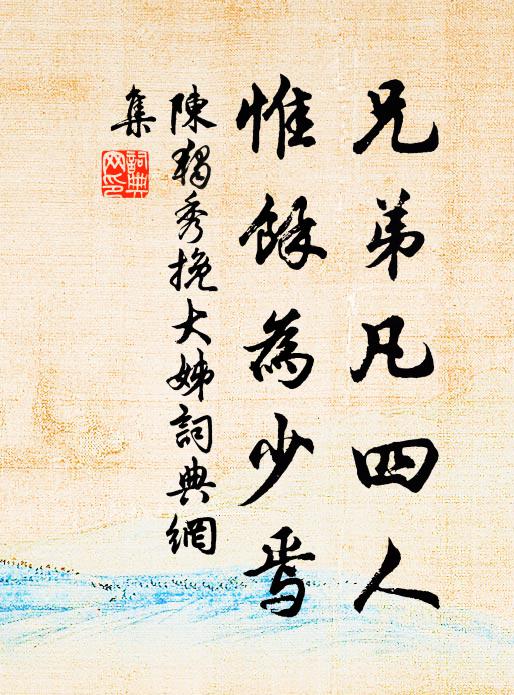 兄弟凡四人
惟餘為少焉
陳獨秀挽大姊詞典網
集
詞典
网印